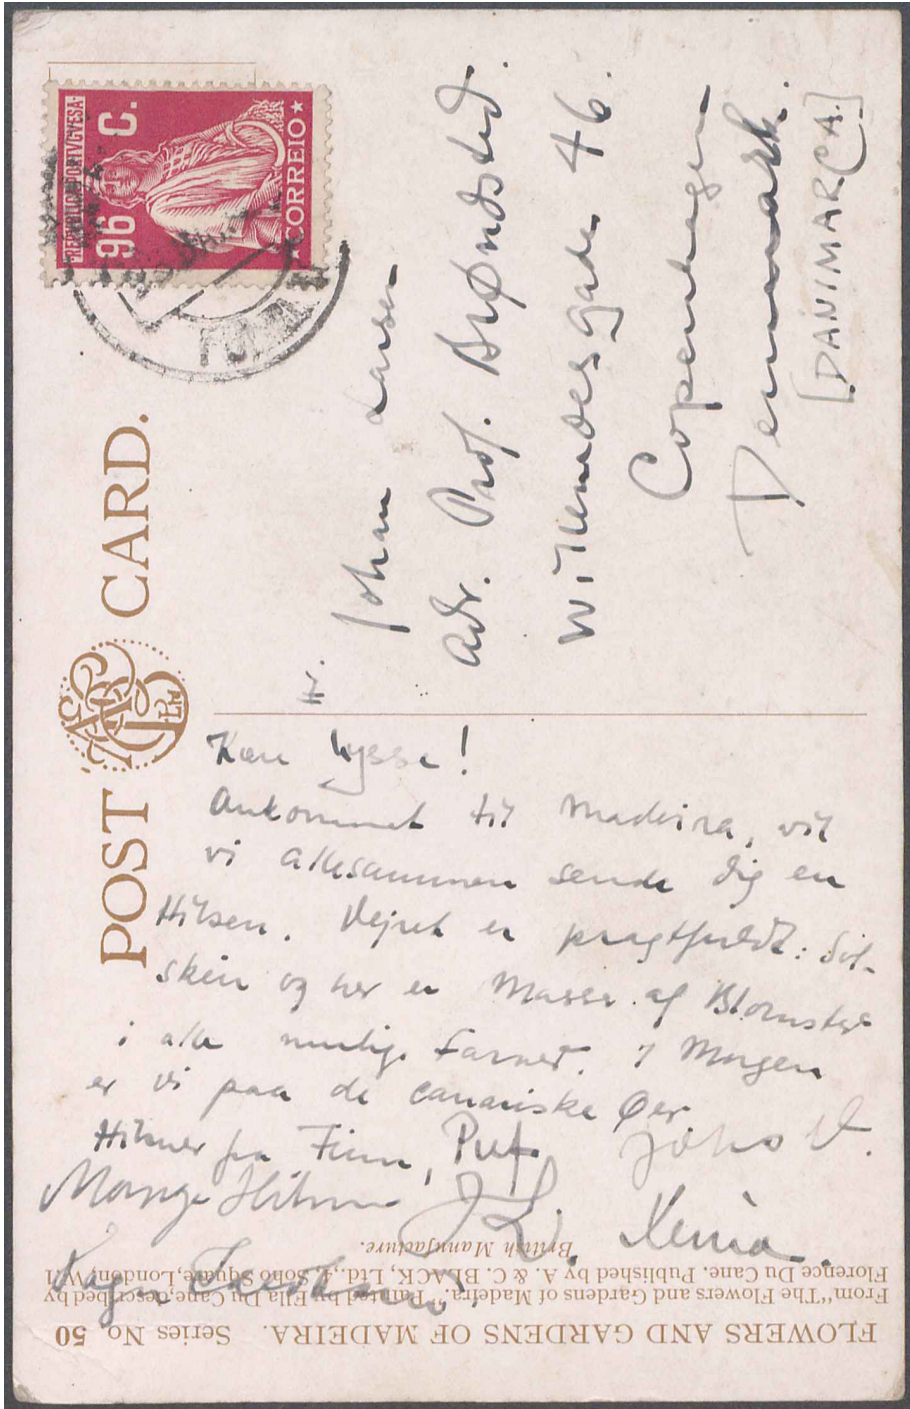 POST CARD.
REPVBLICA PORTVGVESA
96 C.
CORREIO
Hr.
Johan Larsen
Adr. Prof. Brøndsted.
Willemoesgade 46.
Copenhagen
Denmark.
[DANIMARCA.]
Kære Lysse!
Ankommet til Madeira, vil
vi allesammen sende dig en
Hilsen. Vejret er pragtfuldt: Sol-
skin og her er Masser af Blomster
i alle mulige Farver. I Morgen
er vi paa de canariske Øer
Hilsner fra Finn, Puf.
Mange Hilsner JL. Xenia.
British Manufacture.
From "The Flowers and Gardens of Madeira." Painted by Ella Du Cane, described by
Florence Du Cane. Published by A. & C. BLACK, Ltd., 4, Soho Square, London, W.1
FLOWERS AND GARDENS OF MADEIRA. Series No. 50